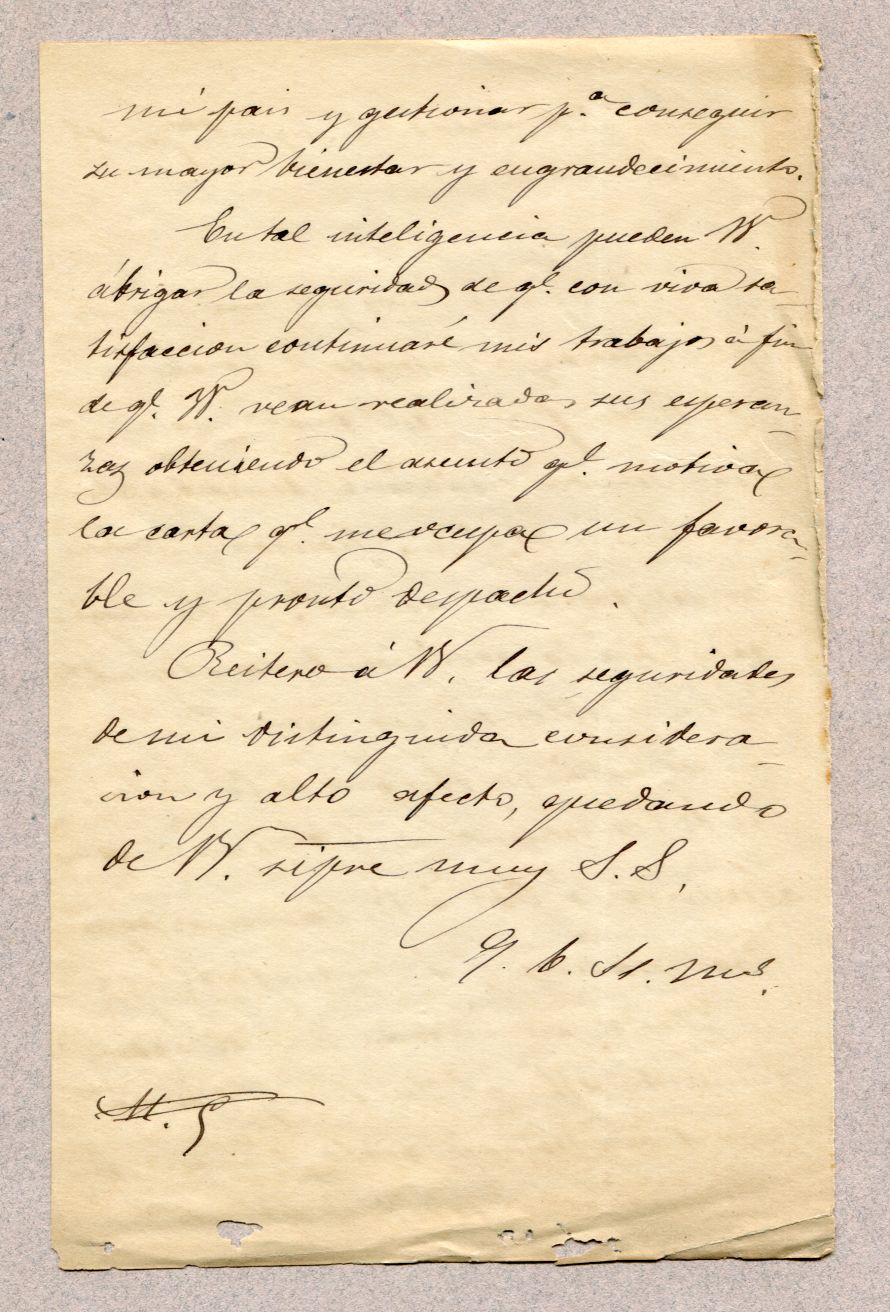 mi pais y gestionar p.ª conseguir
su mayor bienestar y engrandecimiento.
En tal inteligencia pueden VV.
ábrigar la seguridad de q.e con viva sa-
tisfaccion continuaré mis trabajos á fin
de q.e VV. vean realizadas sus esperan-
zas obteniendo el asunto q.e motiva
la carta q.e me ocupa un favora-
ble y pronto despacho.
Reitero á VV. las seguridades
de mi distinguida considera-
cion y alto afecto, quedando
de VV. sipre muy S. S.
Q. B. SS. Ms.
M. S